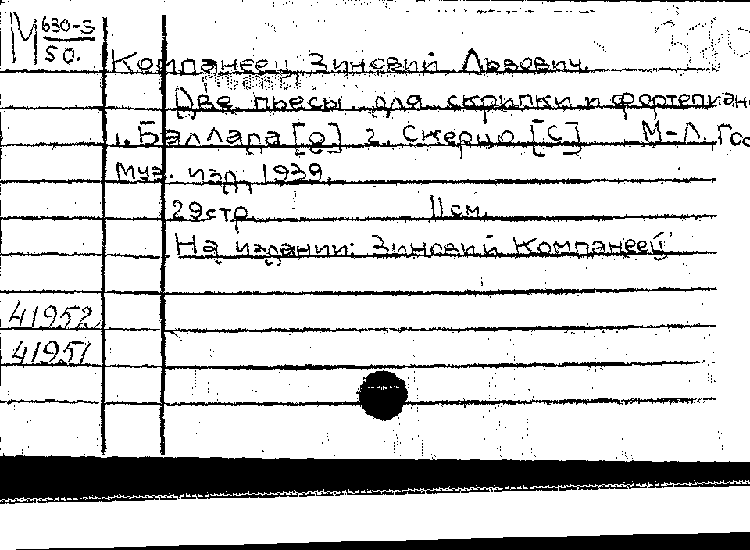 М 630-S
50.
Компанеец Зиновий Львович.
Две пьесы для скрипки и фортепиано
1. Баллада [g] 2. Скерцо [C] М-Л. Гос
муз. изд. 1939.
29стр. 11см.
На издании: Зиновий Компанеец
41952
41951